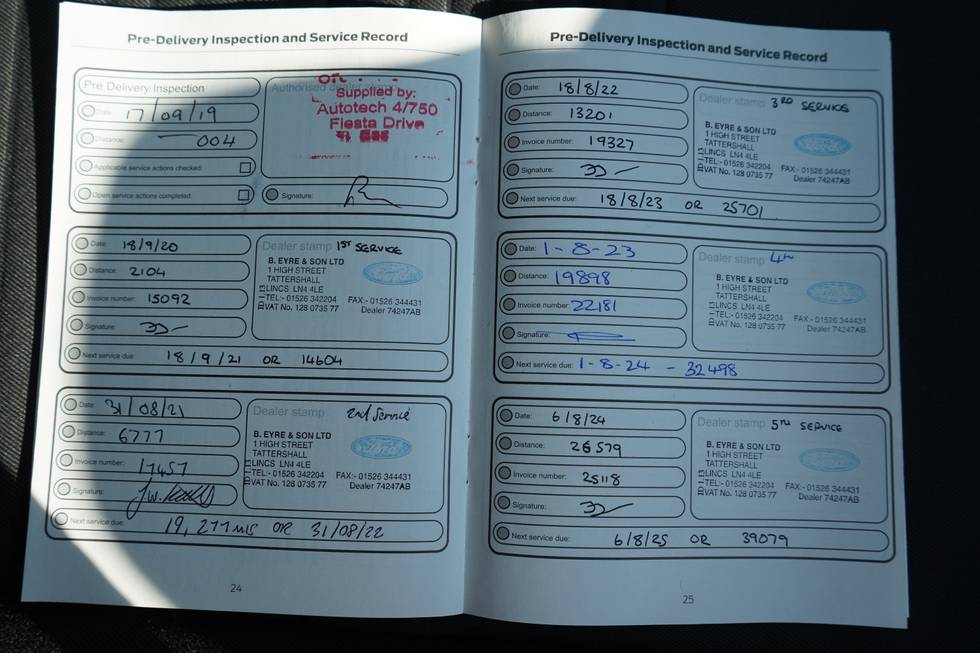 Pre-Delivery Inspection and Service Record
Pre Delivery Inspection
Date: 17/09/19
Distance: 004
Applicable service actions checked:
Open service actions completed:
Authorised dealer
Supplied by:
Autotech 4/750
Fiesta Drive
Signature:
Date: 18/9/20
Distance: 2104
Invoice number: 15092
Signature:
Next service due: 18/9/21 OR 14604
Dealer stamp 1ST SERVICE
B. EYRE & SON LTD
1 HIGH STREET
TATTERSHALL
LINCS LN4 4LE
TEL:- 01526 342204 FAX:- 01526 344431
VAT No. 128 0735 77 Dealer 74247AB
Date: 31/08/21
Distance: 6777
Invoice number: 17457
Signature:
Next service due: 19,277 MLS OR 31/08/22
Dealer stamp 2nd Service
B. EYRE & SON LTD
1 HIGH STREET
TATTERSHALL
LINCS LN4 4LE
TEL:- 01526 342204 FAX:- 01526 344431
VAT No. 128 0735 77 Dealer 74247AB
24
Pre-Delivery Inspection and Service Record
Date: 18/8/22
Distance: 13201
Invoice number: 19327
Signature:
Next service due: 18/8/23 OR 25701
Dealer stamp 3RD SERVICE
B. EYRE & SON LTD
1 HIGH STREET
TATTERSHALL
LINCS LN4 4LE
TEL:- 01526 342204 FAX:- 01526 344431
VAT No. 128 0735 77 Dealer 74247AB
Date: 1-8-23
Distance: 19898
Invoice number: 22181
Signature:
Next service due: 1-8-24 - 32498
Dealer stamp 4th
B. EYRE & SON LTD
1 HIGH STREET
TATTERSHALL
LINCS LN4 4LE
TEL:- 01526 342204 FAX:- 01526 344431
VAT No. 128 0735 77 Dealer 74247AB
Date: 6/8/24
Distance: 26579
Invoice number: 25118
Signature:
Next service due: 6/8/25 OR 39079
Dealer stamp 5TH SERVICE
B. EYRE & SON LTD
1 HIGH STREET
TATTERSHALL
LINCS LN4 4LE
TEL:- 01526 342204 FAX:- 01526 344431
VAT No. 128 0735 77 Dealer 74247AB
25